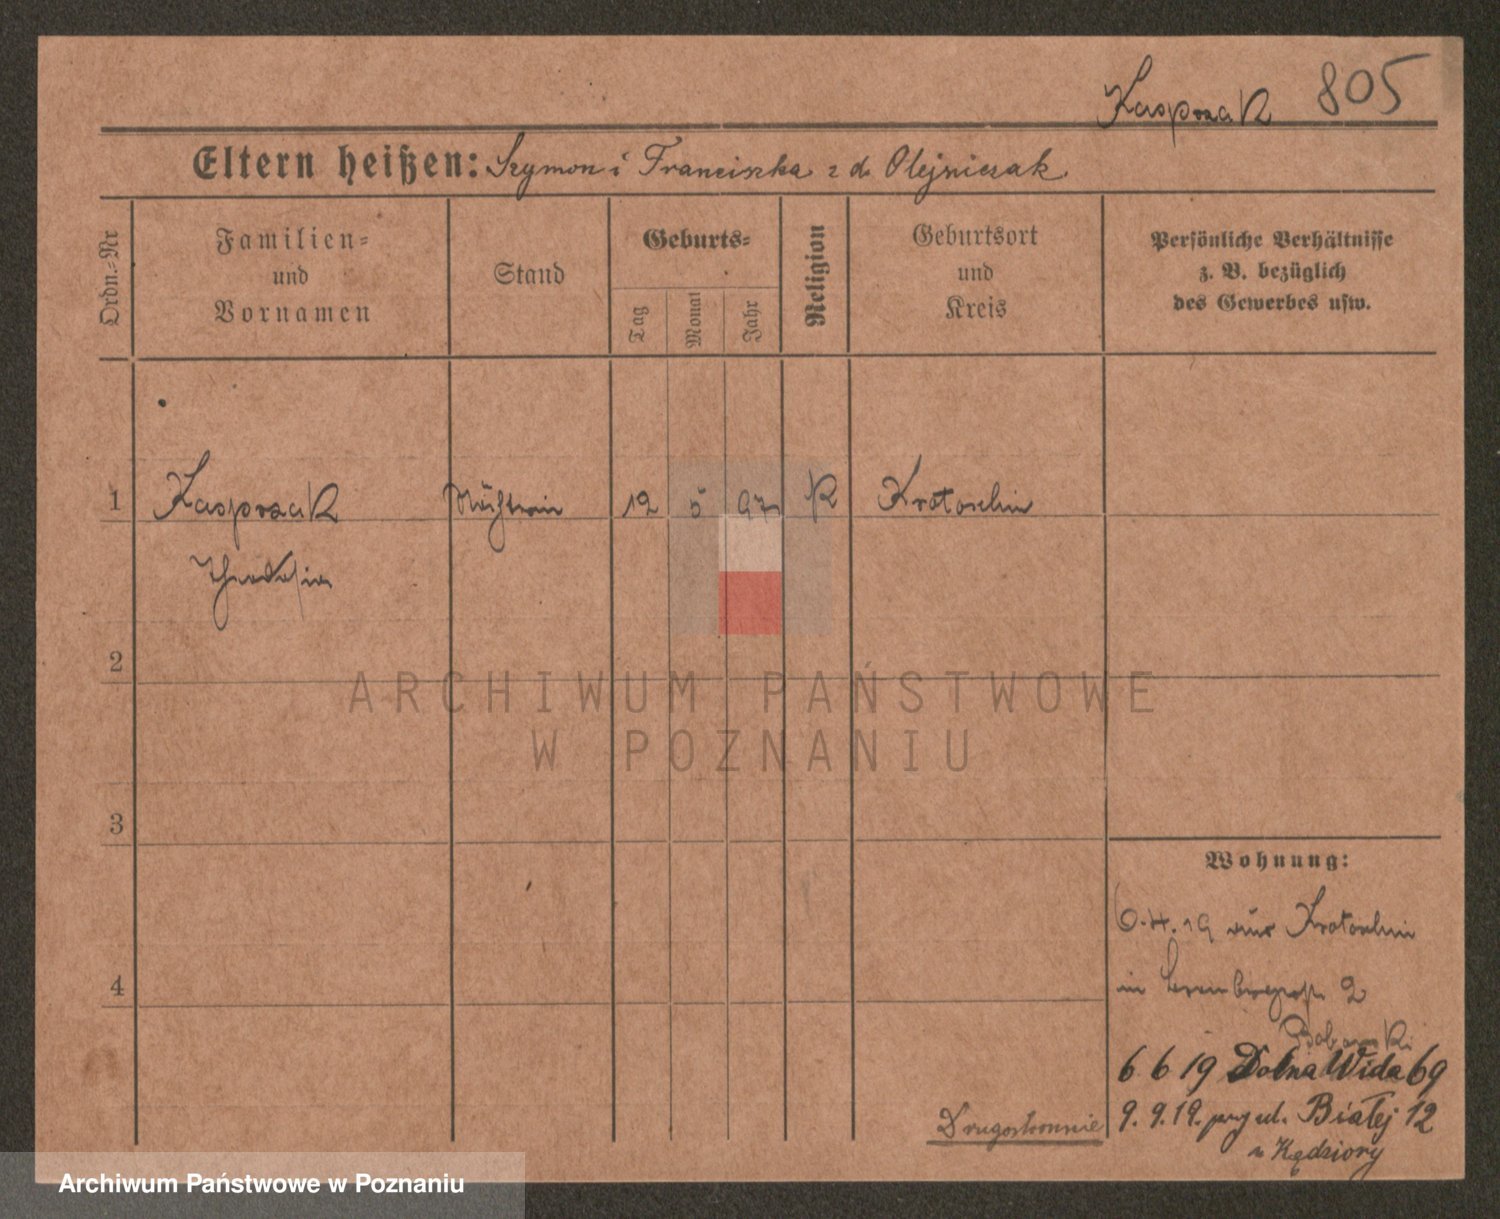 Kasprzak 805
Eltern heißen: Szymon i Franciszka z d. Olejniczak
Ordn.-Nr
Familien-
und
Vornamen
Stand
Geburts-
Tag
Monat
Jahr
Religion
Geburtsort
und
Kreis
Persönliche Verhältnisse
z. B. bezüglich
des Gewerbes usw.
1 Kasprzak 12 5 97 K Krotoschin
Theodosia
2
ARCHIWUM PAŃSTWOWE
W POZNANIU
3
Wohnung:
6.4.19 aus Krotoschin
4
in 2
6 6 19 Dolna Wida 69
9.9.19. przy ul. Białej 12
Drugostronnie
u Kędziory
Archiwum Państwowe w Poznaniu